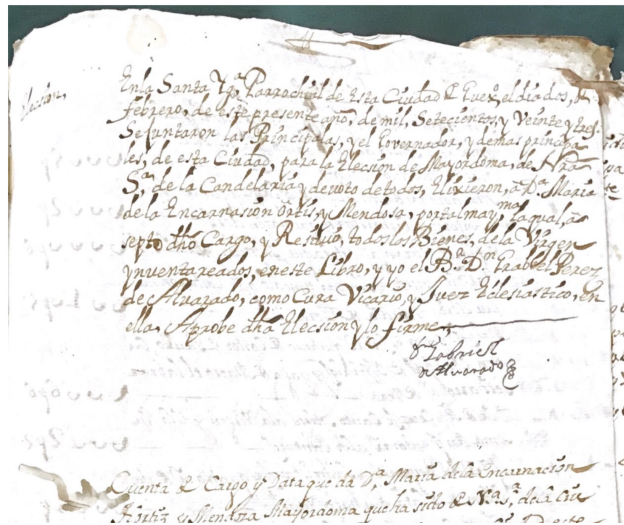 Elecsion,
En la Santa Ygª Parrochial de esta Ciudad el dia dos, de
febrero, de este presente año, de mil, Setecientos, y Veinte y tres
Se Juntaron las Principalas, y el Governador, y demas principa
les, de esta Ciudad, para la Elecsion de Mayordoma, de Nrª
Sª de la Candelaria y devoto de todos, Elixieron, a Dª Maria
de la Encarnasion Ortis, y Mendosa, por tal mayma la qual, ac
septo dho Cargo, y Resivio, todos los Bienes, de la Virgen
ynventareados, en este Libro, y yo el Br Dn Grabiel Perez
de Alvarado, como Cura Vicario, y Juez Eclesiastico, en
ella, Aprobe dha Elecsion y lo firme
Gabriel
de Alvarado
Cuenta de Cargo y Data que da Dª Maria de la Encarnacion
Hortiz y Mendoza Mayordoma que ha sido de Nª Sª de la